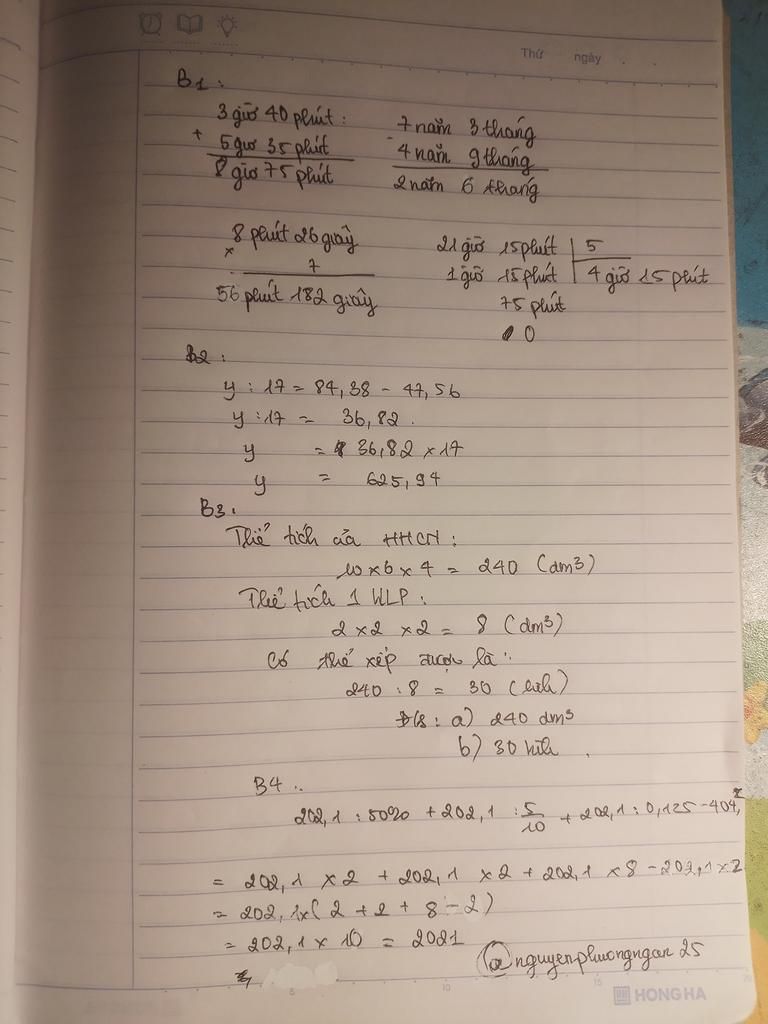 Thứ ngày . .
B1 :
3 giờ 40 phút :
+
5 giờ 35 phút
8 giờ 75 phút
7 năm 3 tháng
-
4 năm 9 tháng
2 năm 6 tháng
8 phút 26 giây
×
7
56 phút 182 giây
21 giờ 15 phút | 5
1 giờ 15 phút | 4 giờ 15 phút
75 phút
0
B2 :
y : 17 = 84,38 - 47,56
y : 17 = 36,82 .
y = 36,82 × 17
y = 625,94
B3 :
Thể tích của HHCN :
10 × 6 × 4 = 240 (dm3)
Thể tích 1 HLP :
2 × 2 × 2 = 8 (dm3)
Có thể xếp được là :
240 : 8 = 30 (hình)
Đ/s : a) 240 dm3
b) 30 hình .
B4 :
202,1 : 50% + 202,1 : 5/10 + 202,1 : 0,125 - 404,2
= 202,1 × 2 + 202,1 × 2 + 202,1 × 8 - 202,1 × 2
= 202,1 × ( 2 + 2 + 8 - 2 )
= 202,1 × 10 = 2021
@nguyenphuongngan25
5 10 15 20
HONG HA